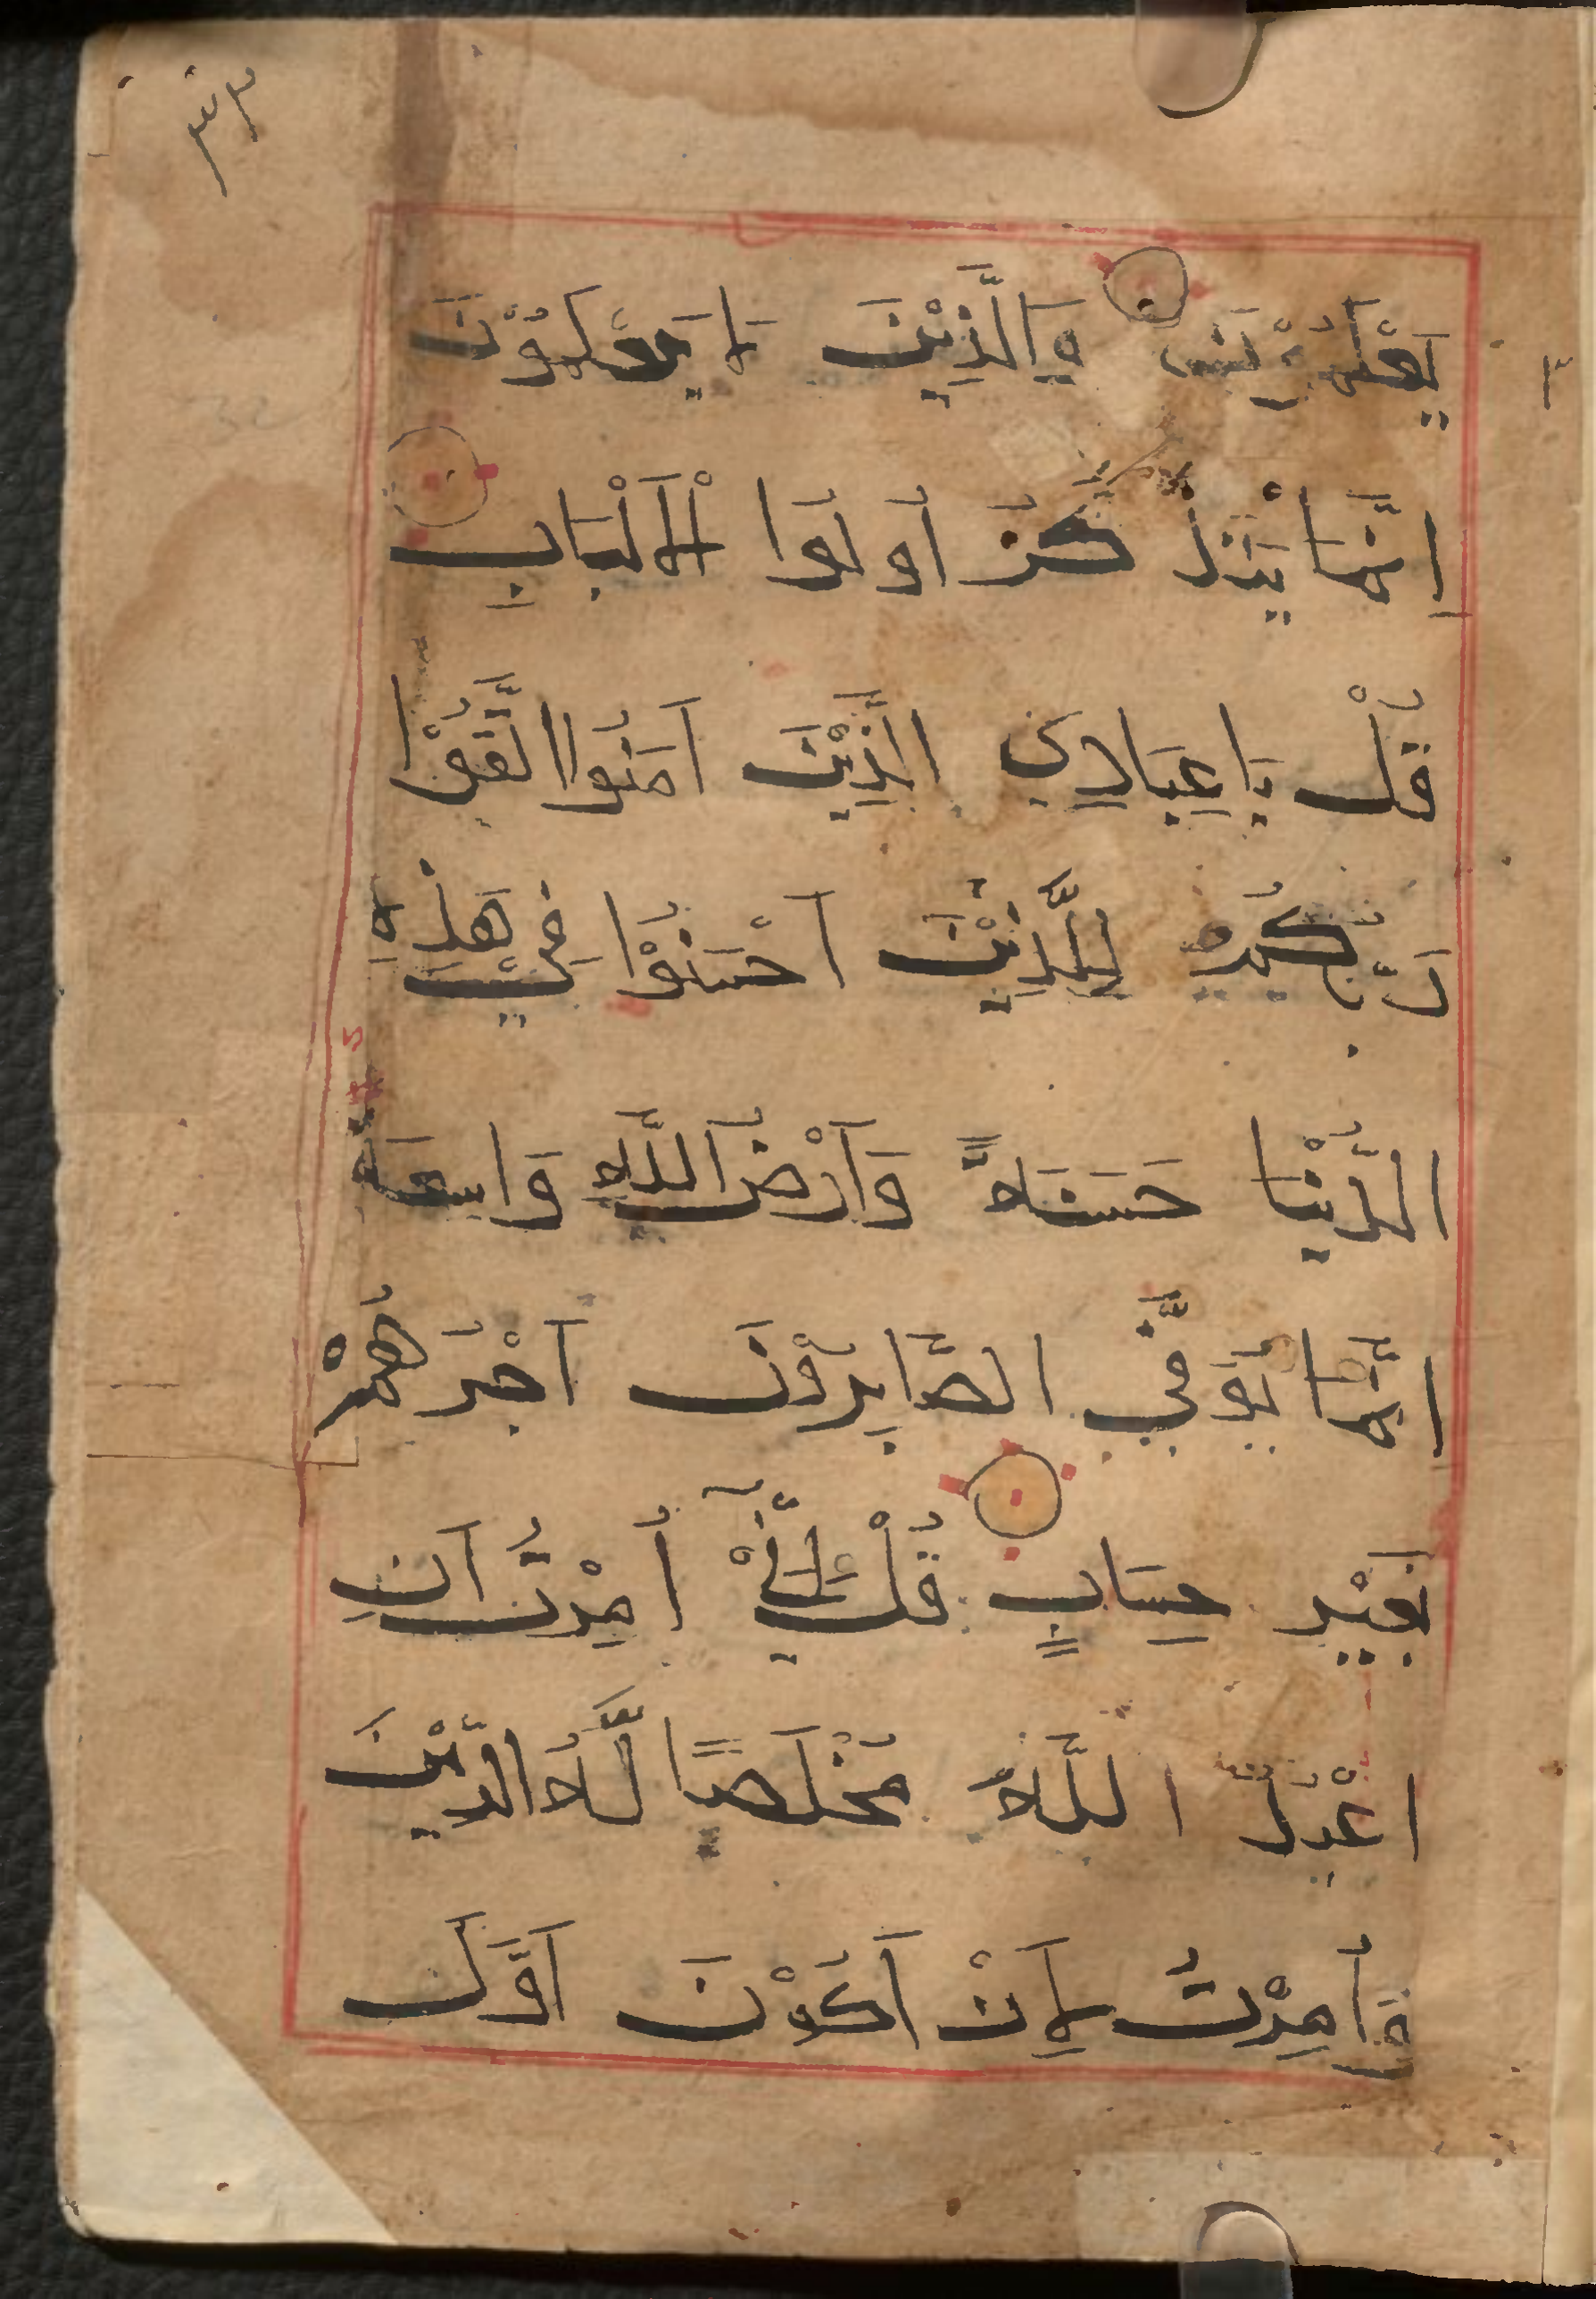 يَعْلَمُوْنَ وَالَّذِيْنَ لَا يَعْلَمُوْنَ
اِنَّمَا يَتَذَكَّرُ اُولُوا الْاَلْبَابِ
قُلْ يَا عِبَادِي الَّذِيْنَ اٰمَنُوا اتَّقُوْا
رَبَّكُمْ لِلَّذِيْنَ اَحْسَنُوْا فِيْ هٰذِهِ
الدُّنْيَا حَسَنَةً وَاَرْضُ اللَّهِ وَاسِعَةٌ
اِنَّمَا يُوَفَّى الصَّابِرُوْنَ اَجْرَهُمْ
بِغَيْرِ حِسَابٍ قُلْ اِنِّيْ اُمِرْتُ اَنْ
اَعْبُدَ اللَّهَ مُخْلِصًا لَّهُ الدِّيْنَ
وَاُمِرْتُ لِاَنْ اَكُوْنَ اَوَّلَ